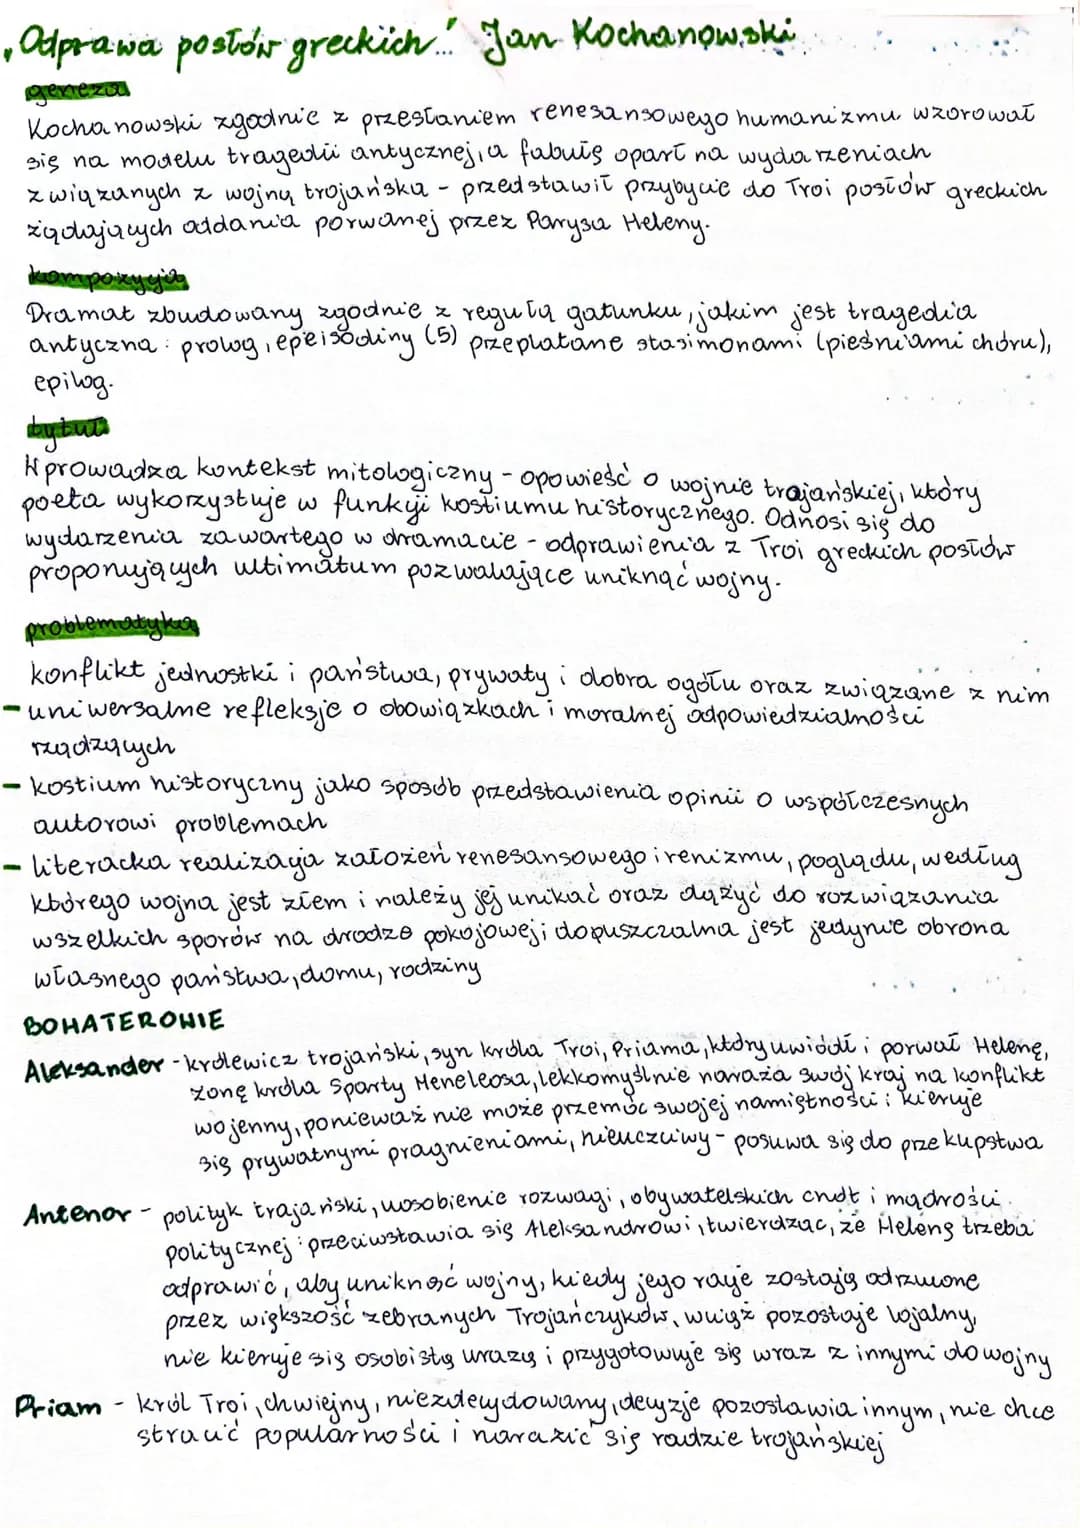 „Odprawa posłów greckich..." Jan Kochanowski
geneza
Kochanowski zgodnie z przesłaniem renesansowego humanizmu wzorował
się na modelu tragedii antycznej, a fabułę oparł na wydarzeniach
związanych z wojną trojańska - przedstawił przybycie do Troi posłów greckich
żądających oddania porwanej przez Parysa Heleny.
kompozycja
Dramat zbudowany zgodnie z regułą gatunku, jakim jest tragedia
antyczna: prolog, epeisodiny (5) przeplatane stasimonami (pieśniami chóru),
epilog.
tytuł
Wprowadza kontekst mitologiczny - opowieść o wojnie trojańskiej, który
poeta wykorzystuje w funkcji kostiumu historycznego. Odnosi się do
wydarzenia zawartego w dramacie - odprawienia z Troi greckich posłów
proponujących ultimatum pozwalające uniknąć wojny.
problematyka
konflikt jednostki i państwa, prywaty i dobra ogółu oraz związane z nim
- uniwersalne refleksje o obowiązkach i moralnej odpowiedzialności
rządzących
- kostium historyczny jako sposób przedstawienia opinii o współczesnych
autorowi problemach
- literacka realizacja założeń renesansowego irenizmu, poglądu, według
którego wojna jest złem i należy jej unikać oraz dążyć do rozwiązania
wszelkich sporów na drodze pokojowej; dopuszczalna jest jedynie obrona
własnego państwa, domu, rodziny
BOHATEROWIE
Aleksander - królewicz trojański, syn króla Troi, Priama, który uwiódł i porwał Helenę,
żonę króla Sparty Meneleosa, lekkomyślnie naraża swój kraj na konflikt
wojenny, ponieważ nie może przemóc swojej namiętności i kieruje
się prywatnymi pragnieniami, nieuczciwy - posuwa się do przekupstwa
Antenor - polityk trajański, uosobienie rozwagi, obywatelskich cnót i mądrości
politycznej; przeciwstawia się Aleksandrowi, twierdząc, że Helenę trzeba
odprawić, aby uniknąć wojny, kiedy jego racje zostają odrzucone
przez większość zebranych Trojańczyków, wciąż pozostaje lojalny,
nie kieruje się osobistą urazą i przygotowuje się wraz z innymi do wojny
Priam - król Troi, chwiejny, niezdecydowany, decyzje pozostawia innym, nie chce
stracić popularności i narazić się radzie trojańskiej